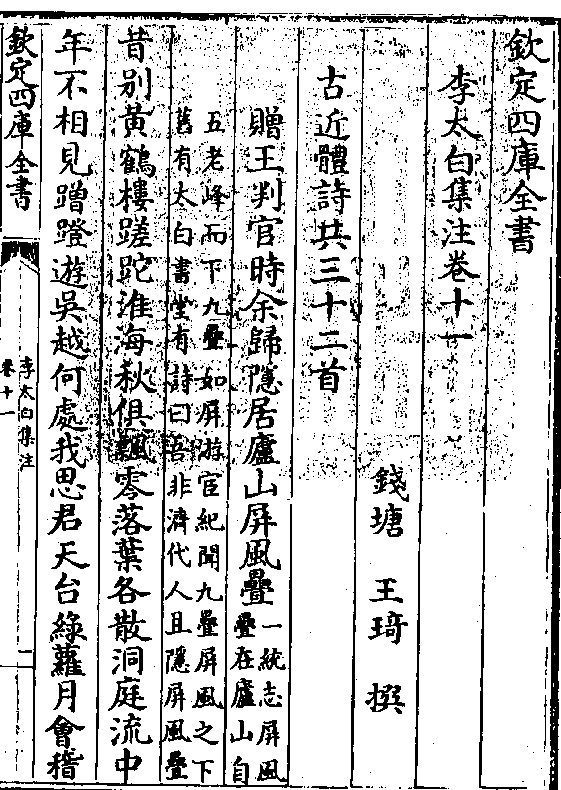 欽定四庫全書
李太白集注卷十一
錢塘 王琦 撰
古近體詩共三十二首
贈王判官時余歸隱居廬山屏風疊
一統志屏風
疊在廬山自
五老峰而下九疊如屏游宦紀聞九疊屏風之下
舊有太白書堂有詩曰吾非濟代人且隱屏風疊
昔别黃鶴樓蹉跎淮海秋俱飄零落葉各散洞庭流中
年不相見蹭蹬遊吳越何處我思君天台綠蘿月會稽
欽定四庫全書
李太白集注
卷十一
一